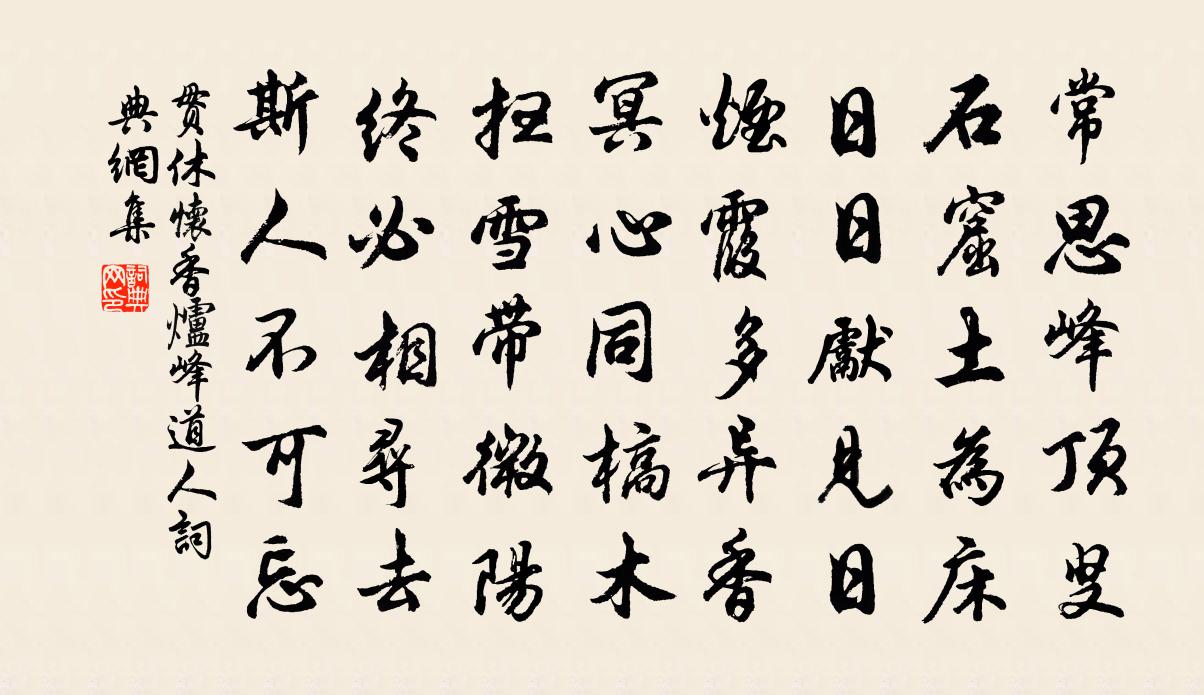 常思峰頂叟
石窟土為床
日日獻見日
煙霞多异香
冥心同槁木
扫雪带微陽
終必相尋去
斯人不可忘
贯休懷香爐峰道人詞
典網集
詞典网印